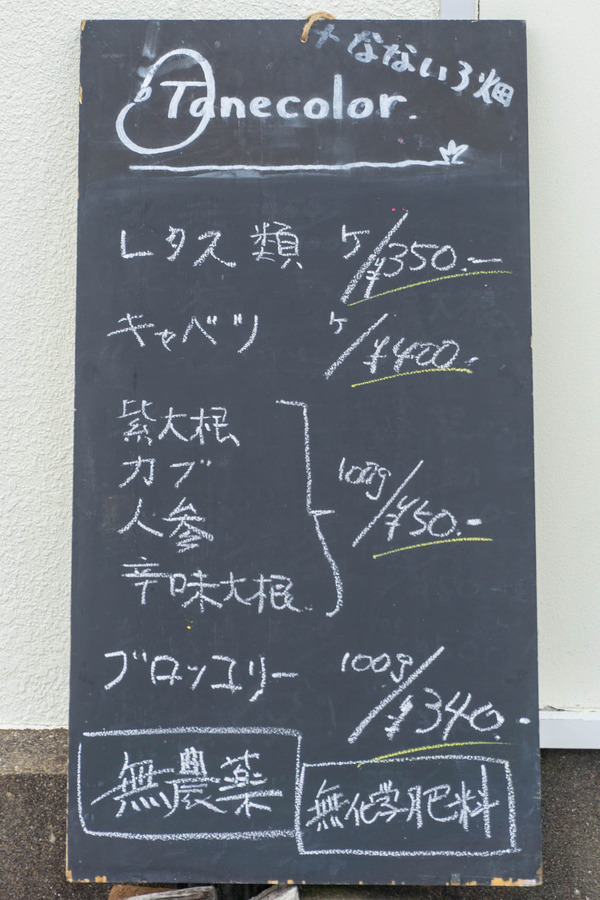 ×なないろ畑
Tanecolor.
レタス類 ケ/¥350.-
キャベツ ケ/¥400.-
紫大根
カブ
人参
辛味大根
100g/¥50.-
ブロッコリー 100g/¥340.-
無農薬
無化学肥料